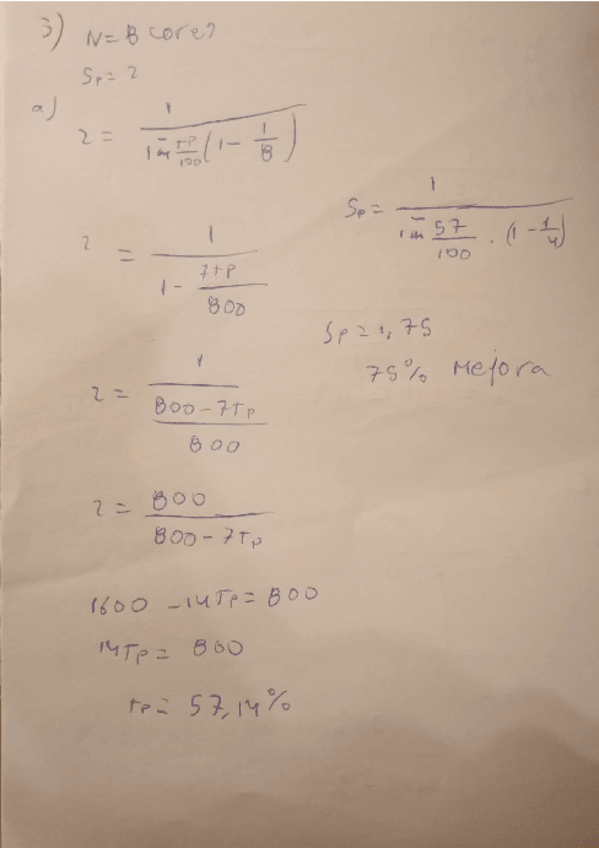 3) N = 8 cores
Sp = 2
a)
2 = 1 / (1 - TP/100 (1 - 1/8))
2 = 1 / (1 - 7TP/800)
2 = 1 / ((800 - 7TP)/800)
2 = 800 / (800 - 7TP)
1600 - 14TP = 800
14TP = 800
TP = 57,14%
Sp = 1 / (1 - 57/100 . (1 - 1/4))
Sp = 1,75
75% Mejora